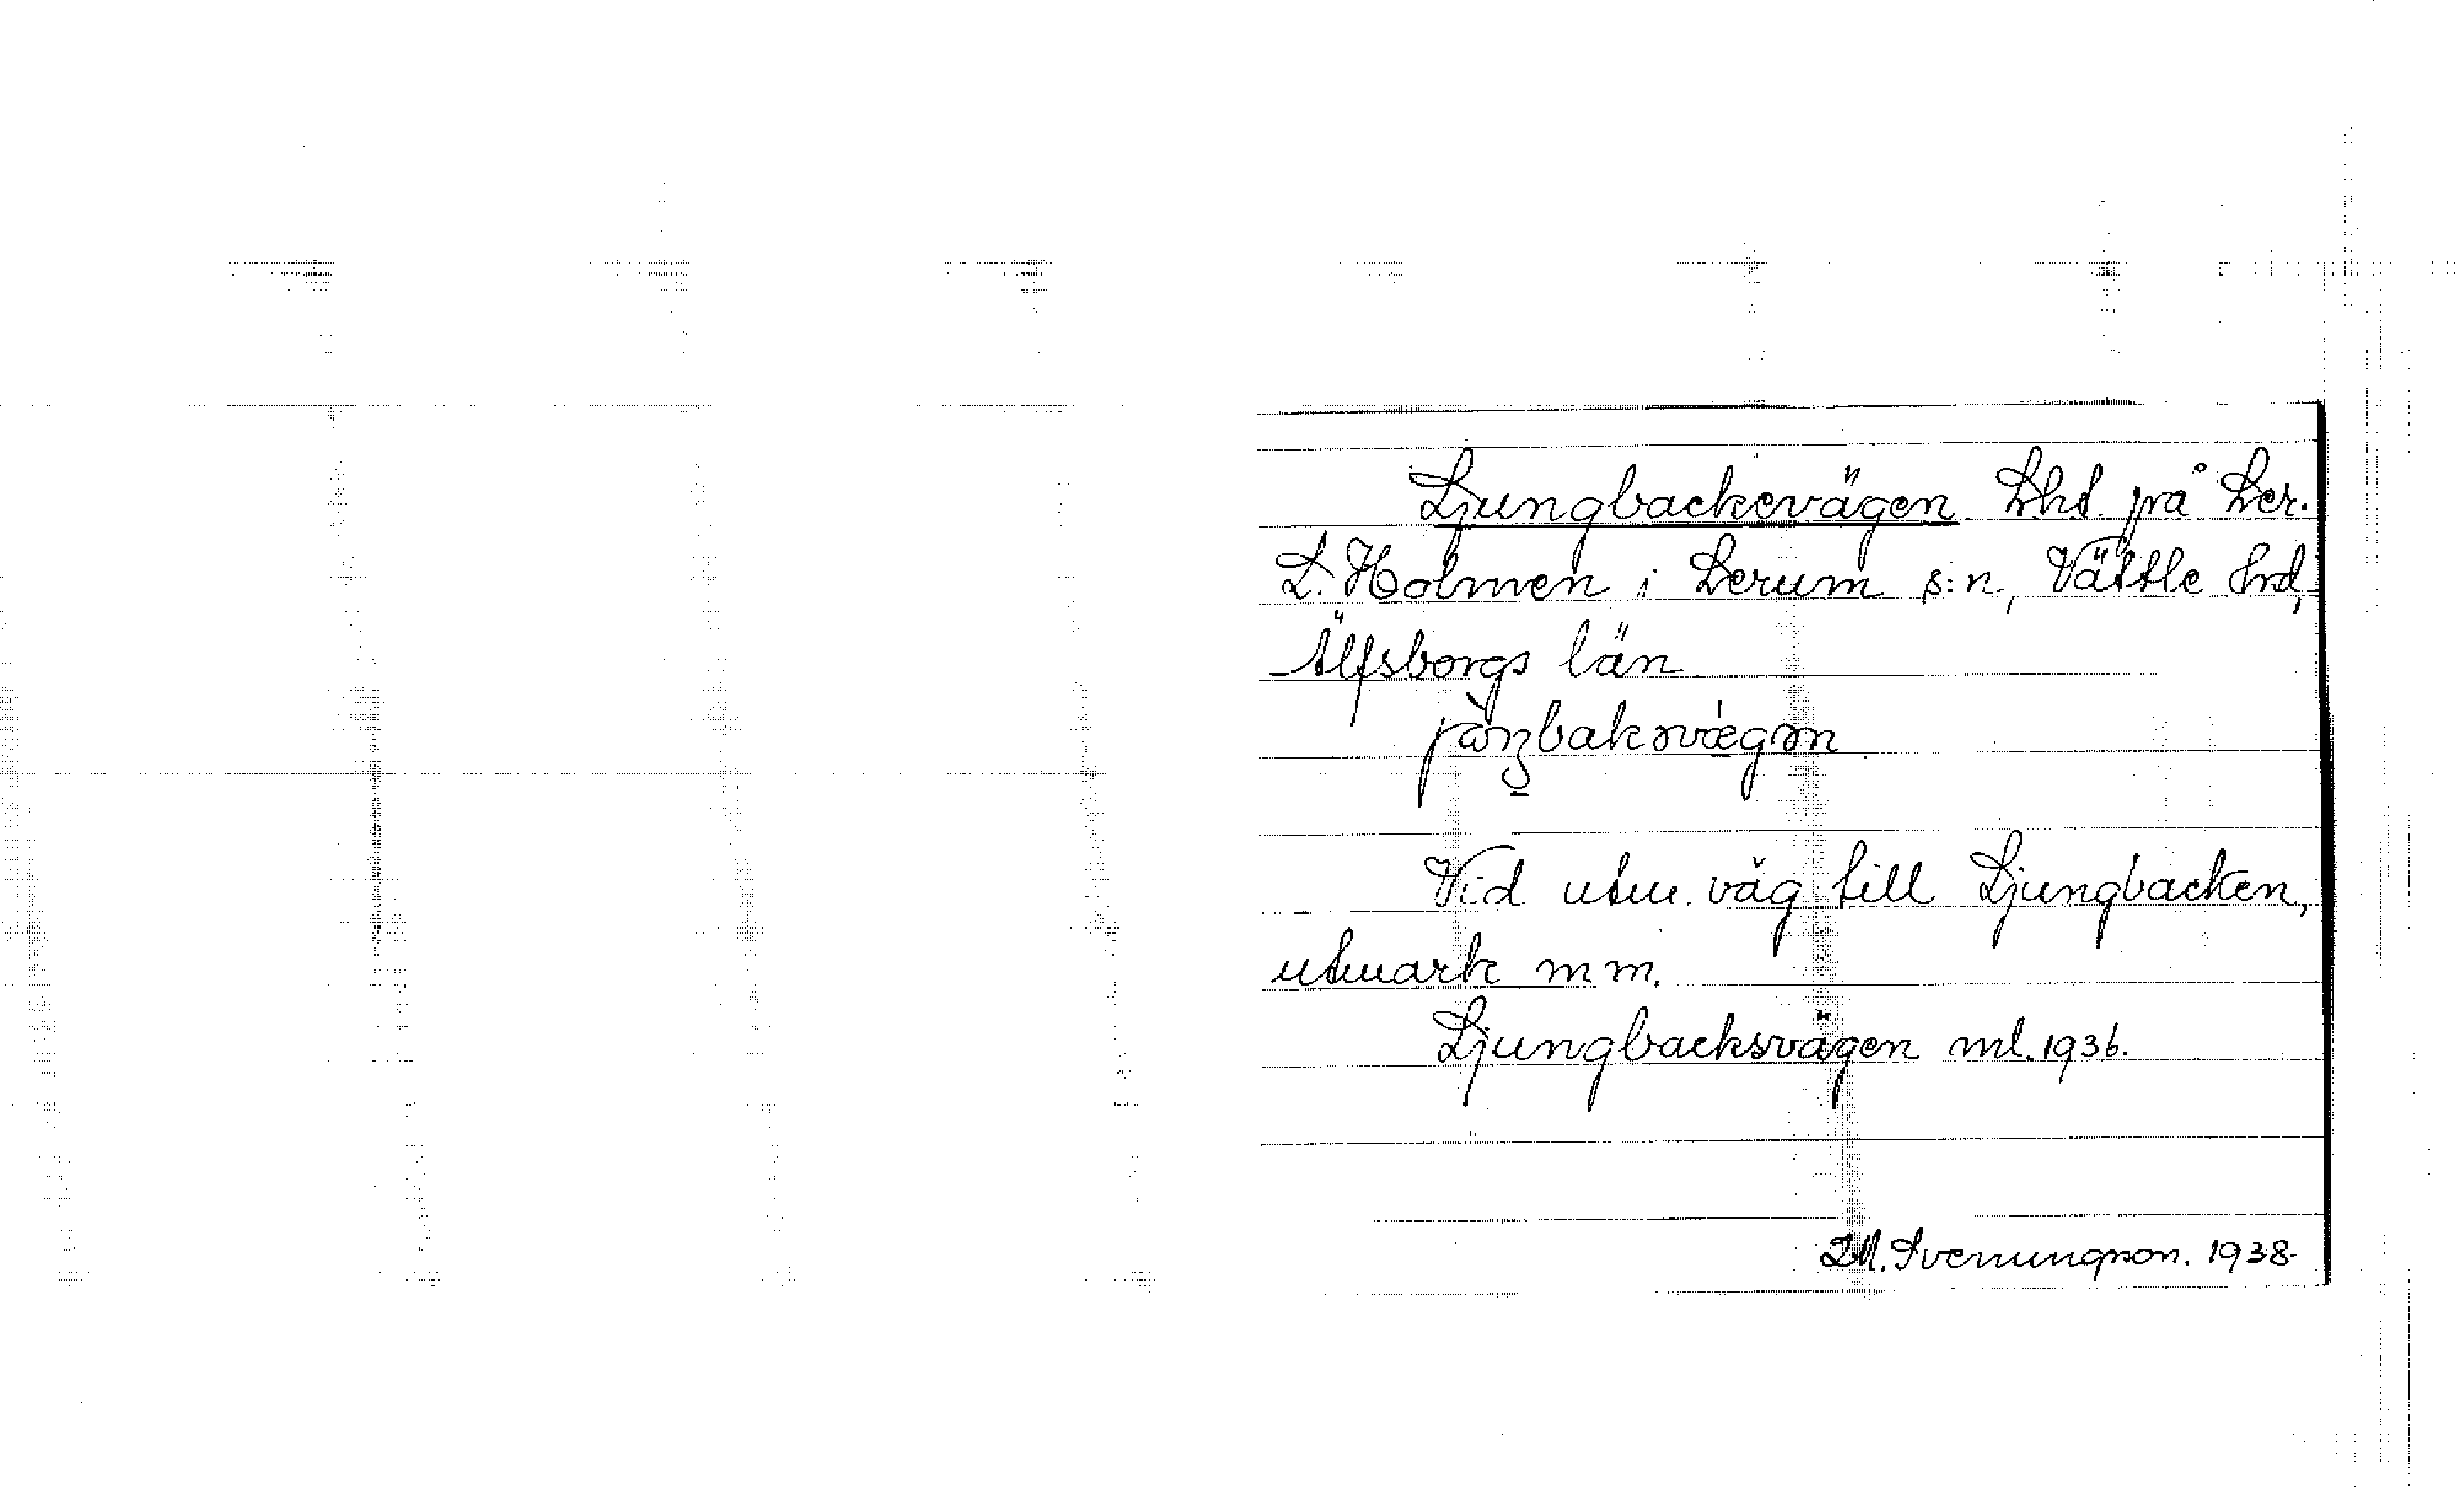 Ljungbackevägen Lhd. på Ler.
L. Holmen i Lerum s:n, Vättle hrd,
Älfsborgs län
Vid utm. väg till Ljungbacken,
utmark m m.
Ljungbacksvägen ml. 1936.
Svenungson. 1938.